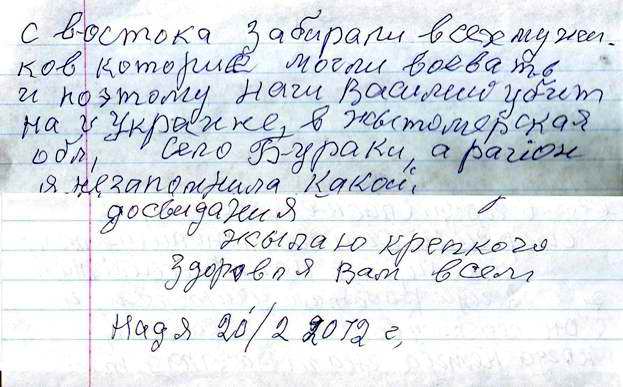 с востока забирали всех мужи-
ков которие могли воевать
и поэтому наш Василий убит
на у Украине, в жытомерская
обл, село Бураки, а рагіон
я незапомнила какой,
досвидания
жылаю крепкого
здоровя вам всем
Надя 20/2 2012 г,